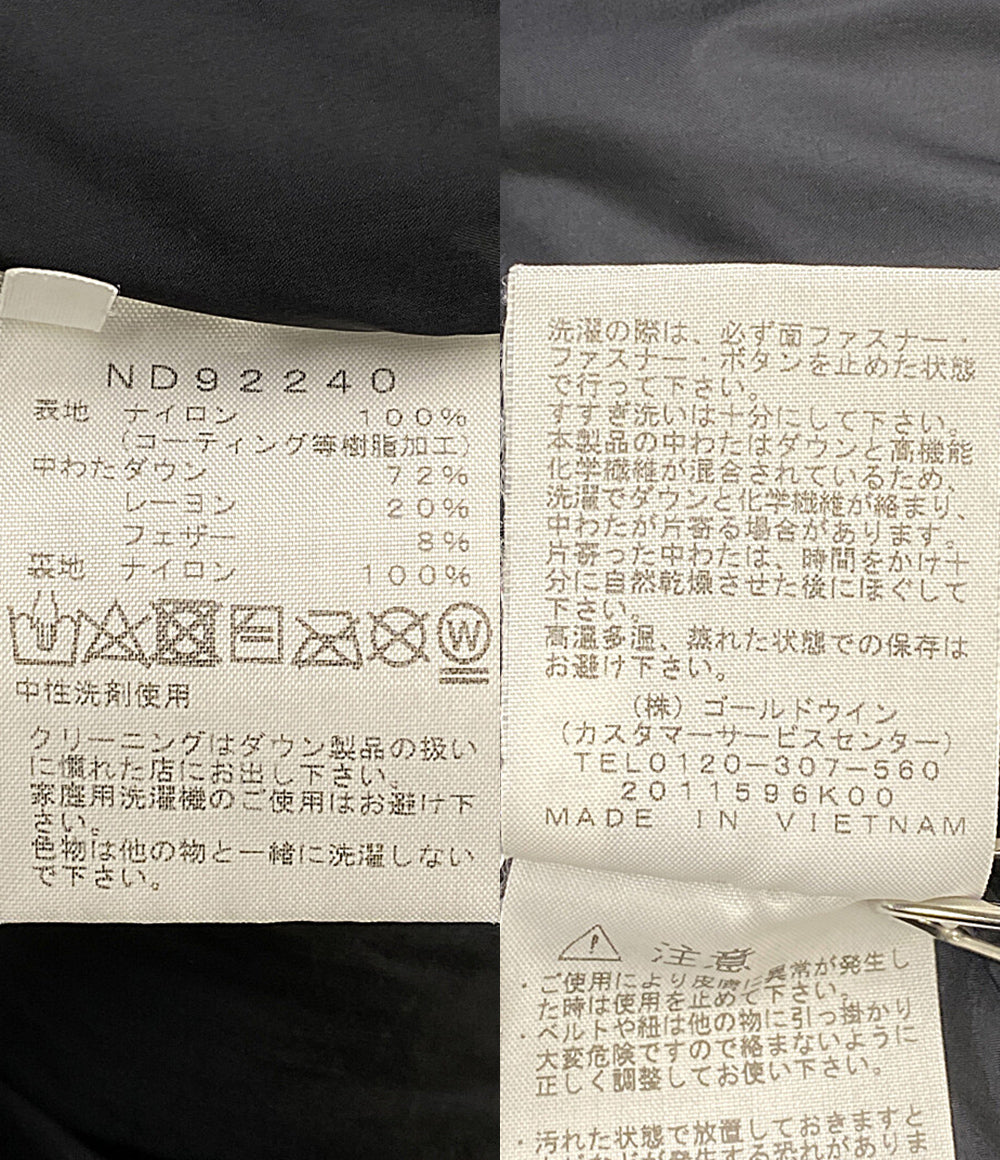 ND92240
表地 ナイロン 100%
(コーティング等樹脂加工)
中わた ダウン 72%
レーヨン 20%
フェザー 8%
裏地 ナイロン 100%
W
中性洗剤使用
クリーニングはダウン製品の扱い
に慣れた店にお出し下さい。
家庭用洗濯機のご使用はお避け下
さい。
色物は他の物と一緒に洗濯しない
で下さい。
洗濯の際は、必ず面ファスナー・
ファスナー・ボタンを止めた状態
で行って下さい。
すすぎ洗いは十分にして下さい。
本製品の中わたはダウンと高機能
化学繊維が混合されているため、
洗濯でダウンと化学繊維が絡まり、
中わたが片寄る場合があります。
片寄った中わたは、時間をかけ十
分に自然乾燥させた後にほぐして
下さい。
高温多湿、蒸れた状態での保存は
お避け下さい。
(株)ゴールドウイン
(カスタマーサービスセンター)
TEL0120-307-560
2011596K00
MADE IN VIETNAM
注意
・ご使用により皮膚に異常が発生し
た時は使用を止めて下さい。
・ベルトや紐は他の物に引っ掛かり
大変危険ですので絡まないように
正しく調整してお使い下さい。
・汚れた状態で放置しておきますと
が発生する恐れがありま